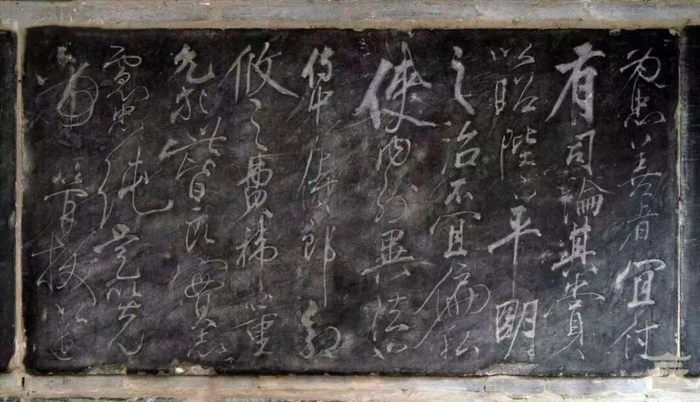 為忠善者宜付
有司論其刑賞
以昭陛下平明
之治不宜偏私
使內外異法也
侍中侍郎郭
攸之費禕董
允等此皆良實志
慮忠純是以先
帝簡拔以遺